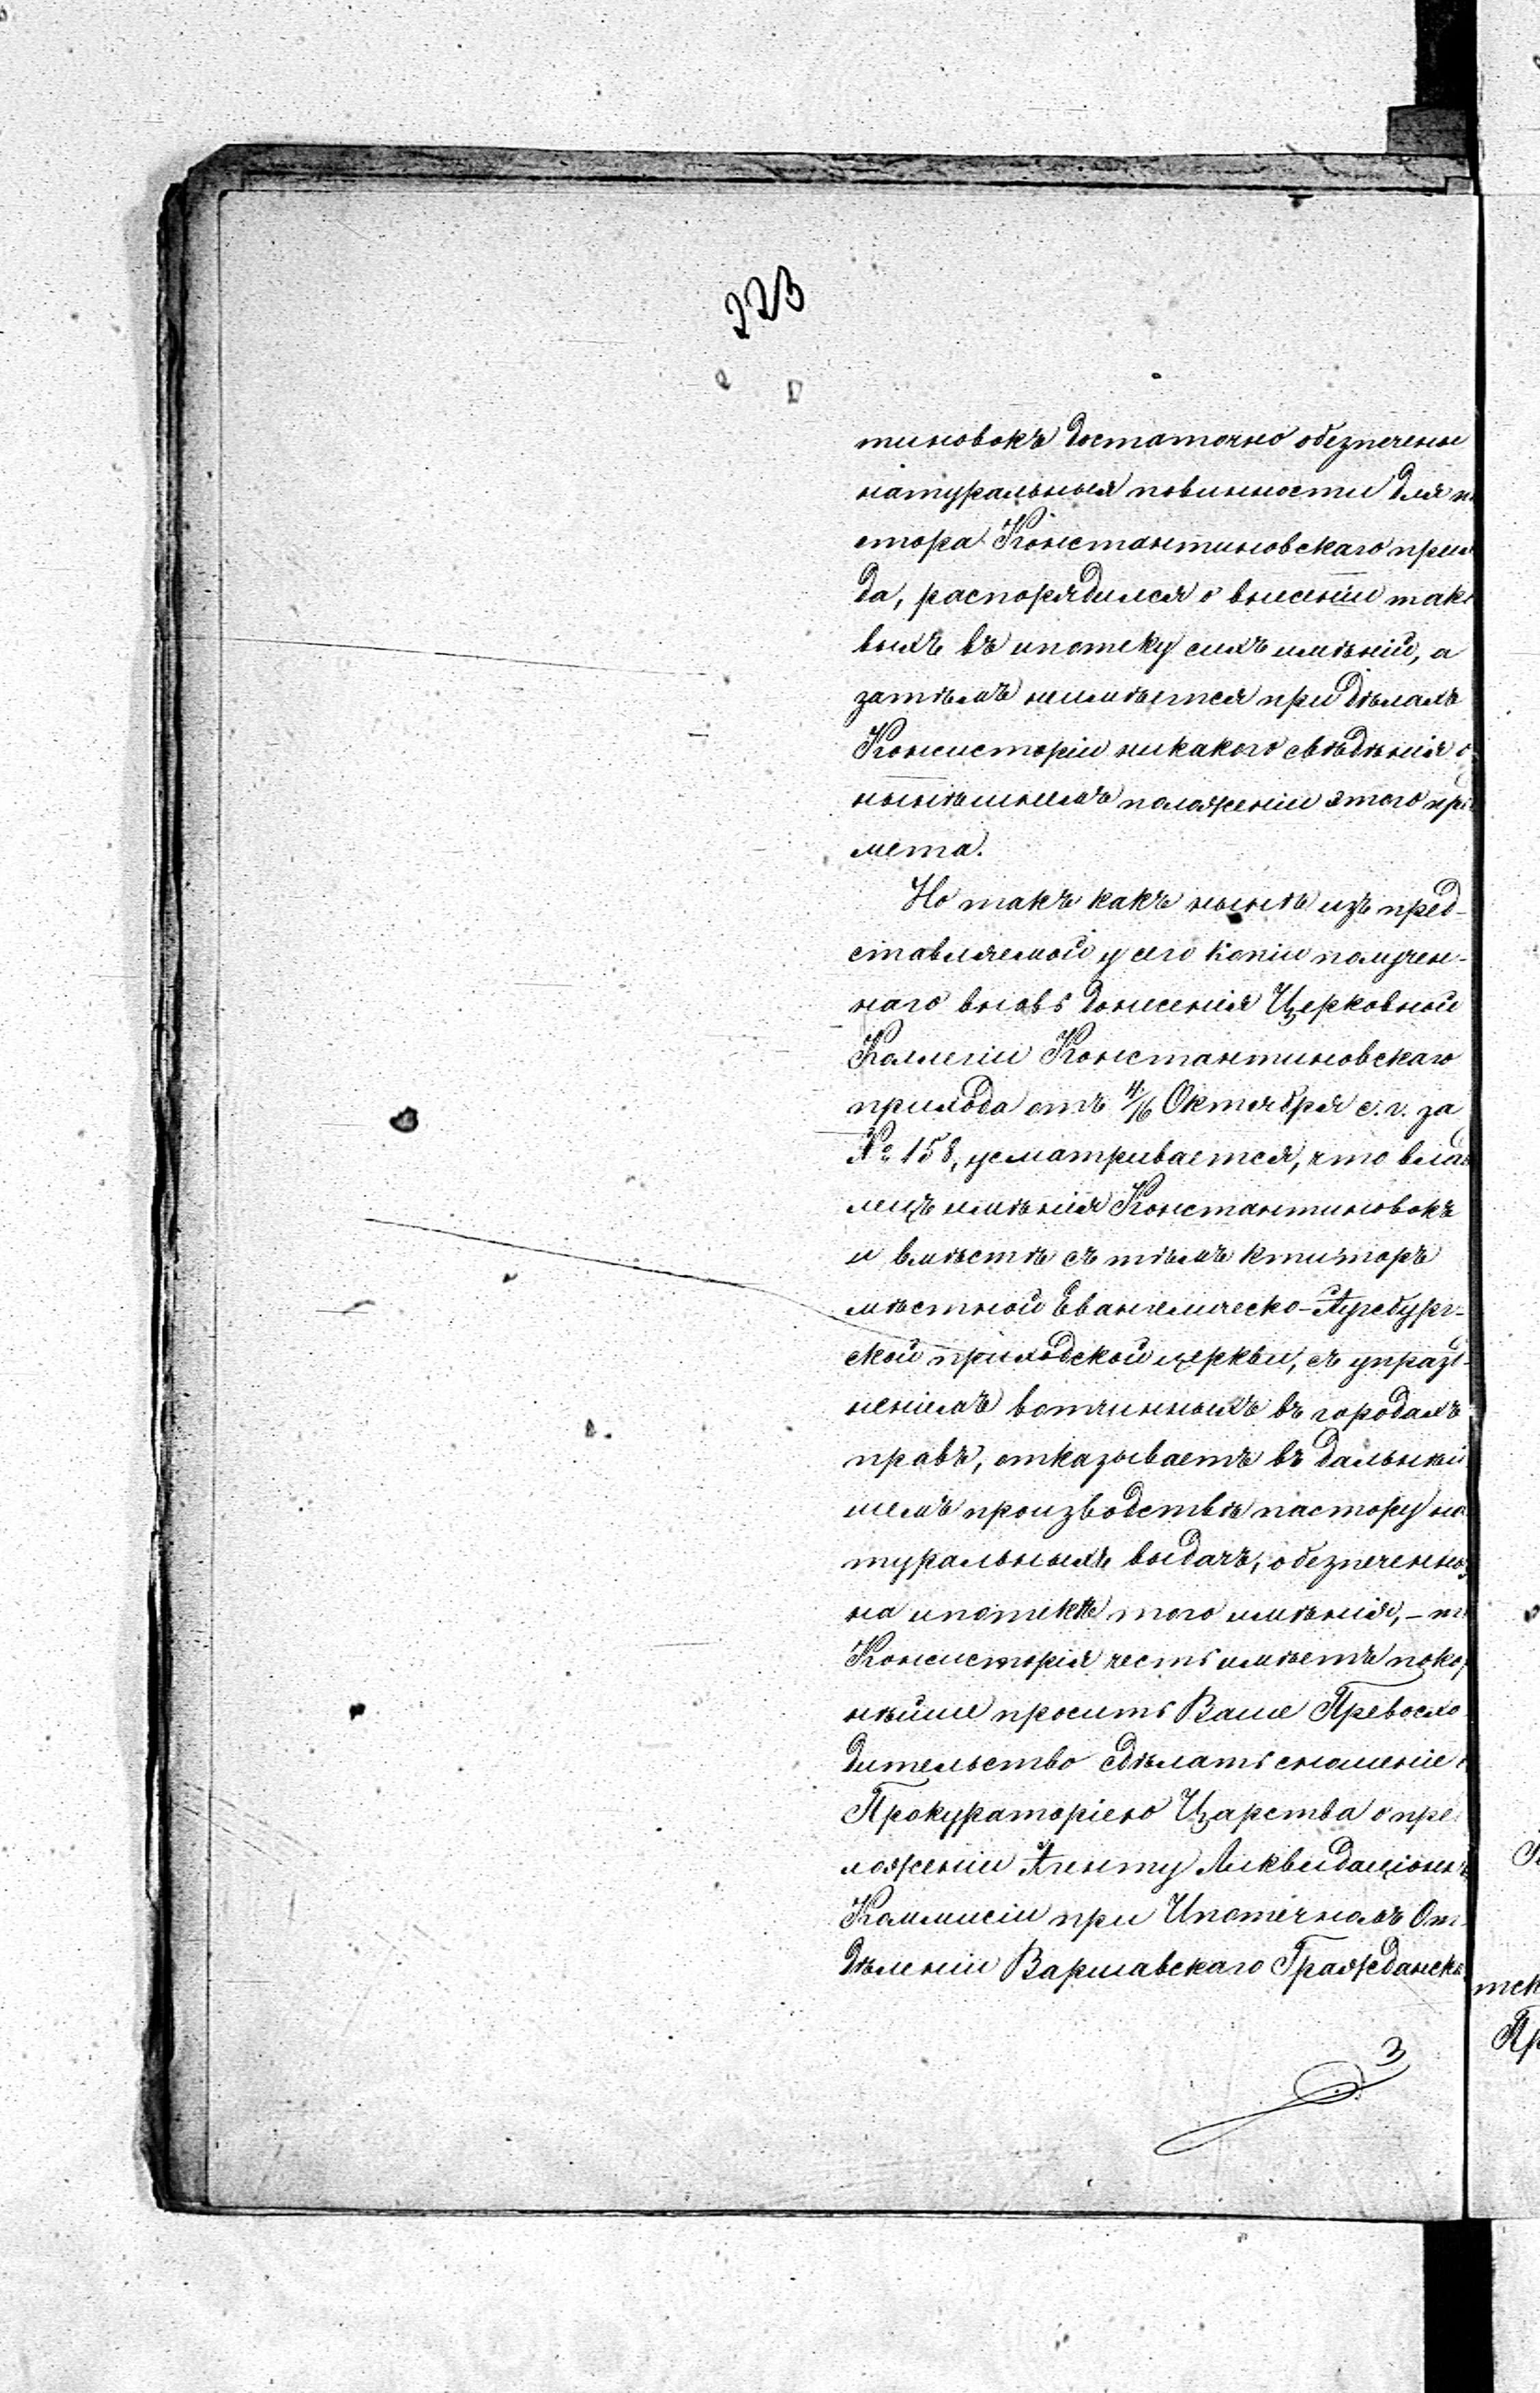 223
тиновокъ достаточно обезпечены
натуральныя повинности для п
стора Константиновскаго прих
да, распорядился о внесеніи так
выхъ въ ипотеку сихъ имѣній, а
затѣмъ неимѣется при дѣлахъ
Консисторіи никакого свѣдѣнія о
нынѣшнемъ положеніи этого пре
мета.
Но такъ какъ нынѣ изъ пред-
ставляемой у сего копіи получен-
наго вновь донесенія Церковной
Коллегіи Константиновскаго
прихода отъ 4/16 Октября с. г. за
№ 158, усматривается, что влад
лецъ имѣнія Константиновокъ
и вмѣстѣ съ тѣмъ ктиторъ
мѣстной Евангелическо-Аугсбург-
ской приходской церкви, съ упраз-
неніемъ вотчинныхъ въ городахъ
правъ, отказываетъ въ дальнѣй
шемъ производствѣ пастору на
туральныхъ выдачъ, обезпеченны
на ипотекѣ того имѣнія, – т
Консисторія честь имѣетъ покор
нѣйше просить Ваше Превосхо
дительство сдѣлать сношеніе с
Прокураторіею Царства о пре
ложеніи Агенту Ликвидаціонн
Коммисіи при Ипотечномъ От-
дѣленіи Варшавскаго Гражданск
3